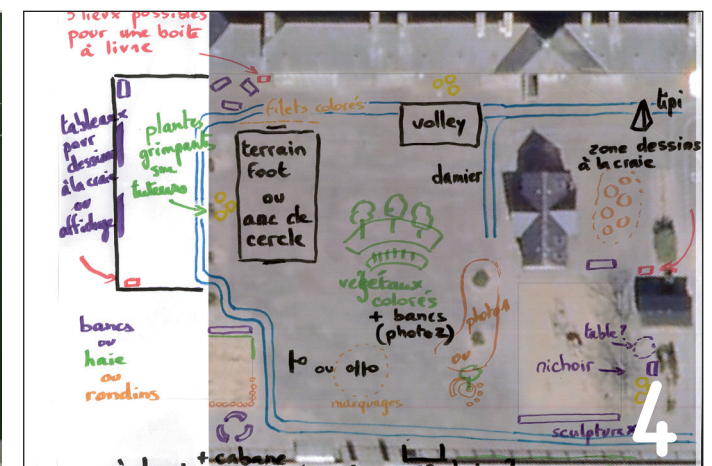 3 lieux possibles
pour une boîte
à livre
tableaux
pour
dessins
à la craie
ou
affichage
plantes
grimpants
sur
tuteurs
filets colorés
terrain
Foot
ou
arc de
cercle
volley
damier
tipi
zone dessins
à la craie
végétaux
colorés
+ bancs
(photo 2)
photo 1
ou
bancs
ou
haie
ou
rondins
ou
marquages
table?
nichoir
sculptures
4
+ cabane